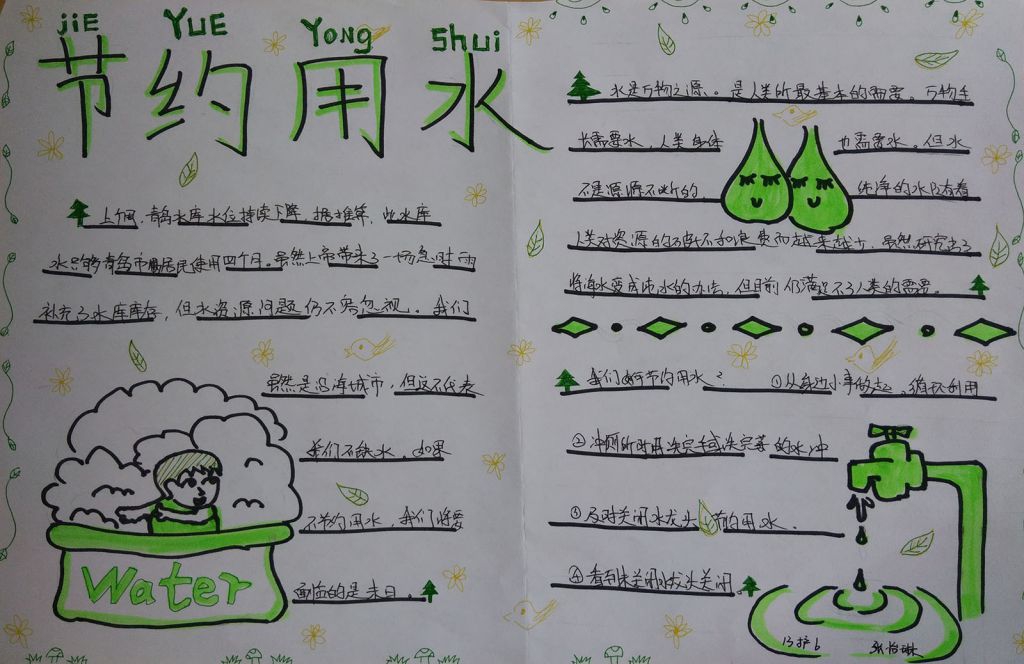 jiE YUE Yong Shui
节约用水
上个月,青岛水库水位持续下降,据推算,此水库
水只够青岛市居民使用四个月。虽然上帝带来了一场及时雨
补充了水库库存,但水资源问题仍不容忽视。我们
虽然是沿海城市,但这不代表
我们不缺水,如果
不节约用水,我们将要
面临的是末日。
Water
水是万物之源。是人类所最基本的需要。万物生
长需要水,人类身体 也需要水。但水
不是源源不断的 纯净的水随着
人类对资源的破坏和浪费而越来越少,虽然研究出了
将海水变成淡水的办法,但目前仍满足不了人类的需要。
我们如何节约用水? ①从身边小事做起,循环利用
②冲厕所时用洗完手或洗完菜的水冲
③及时关闭水龙头 节约用水.
④看到未关闭水龙头关闭
13护6 张怡琳